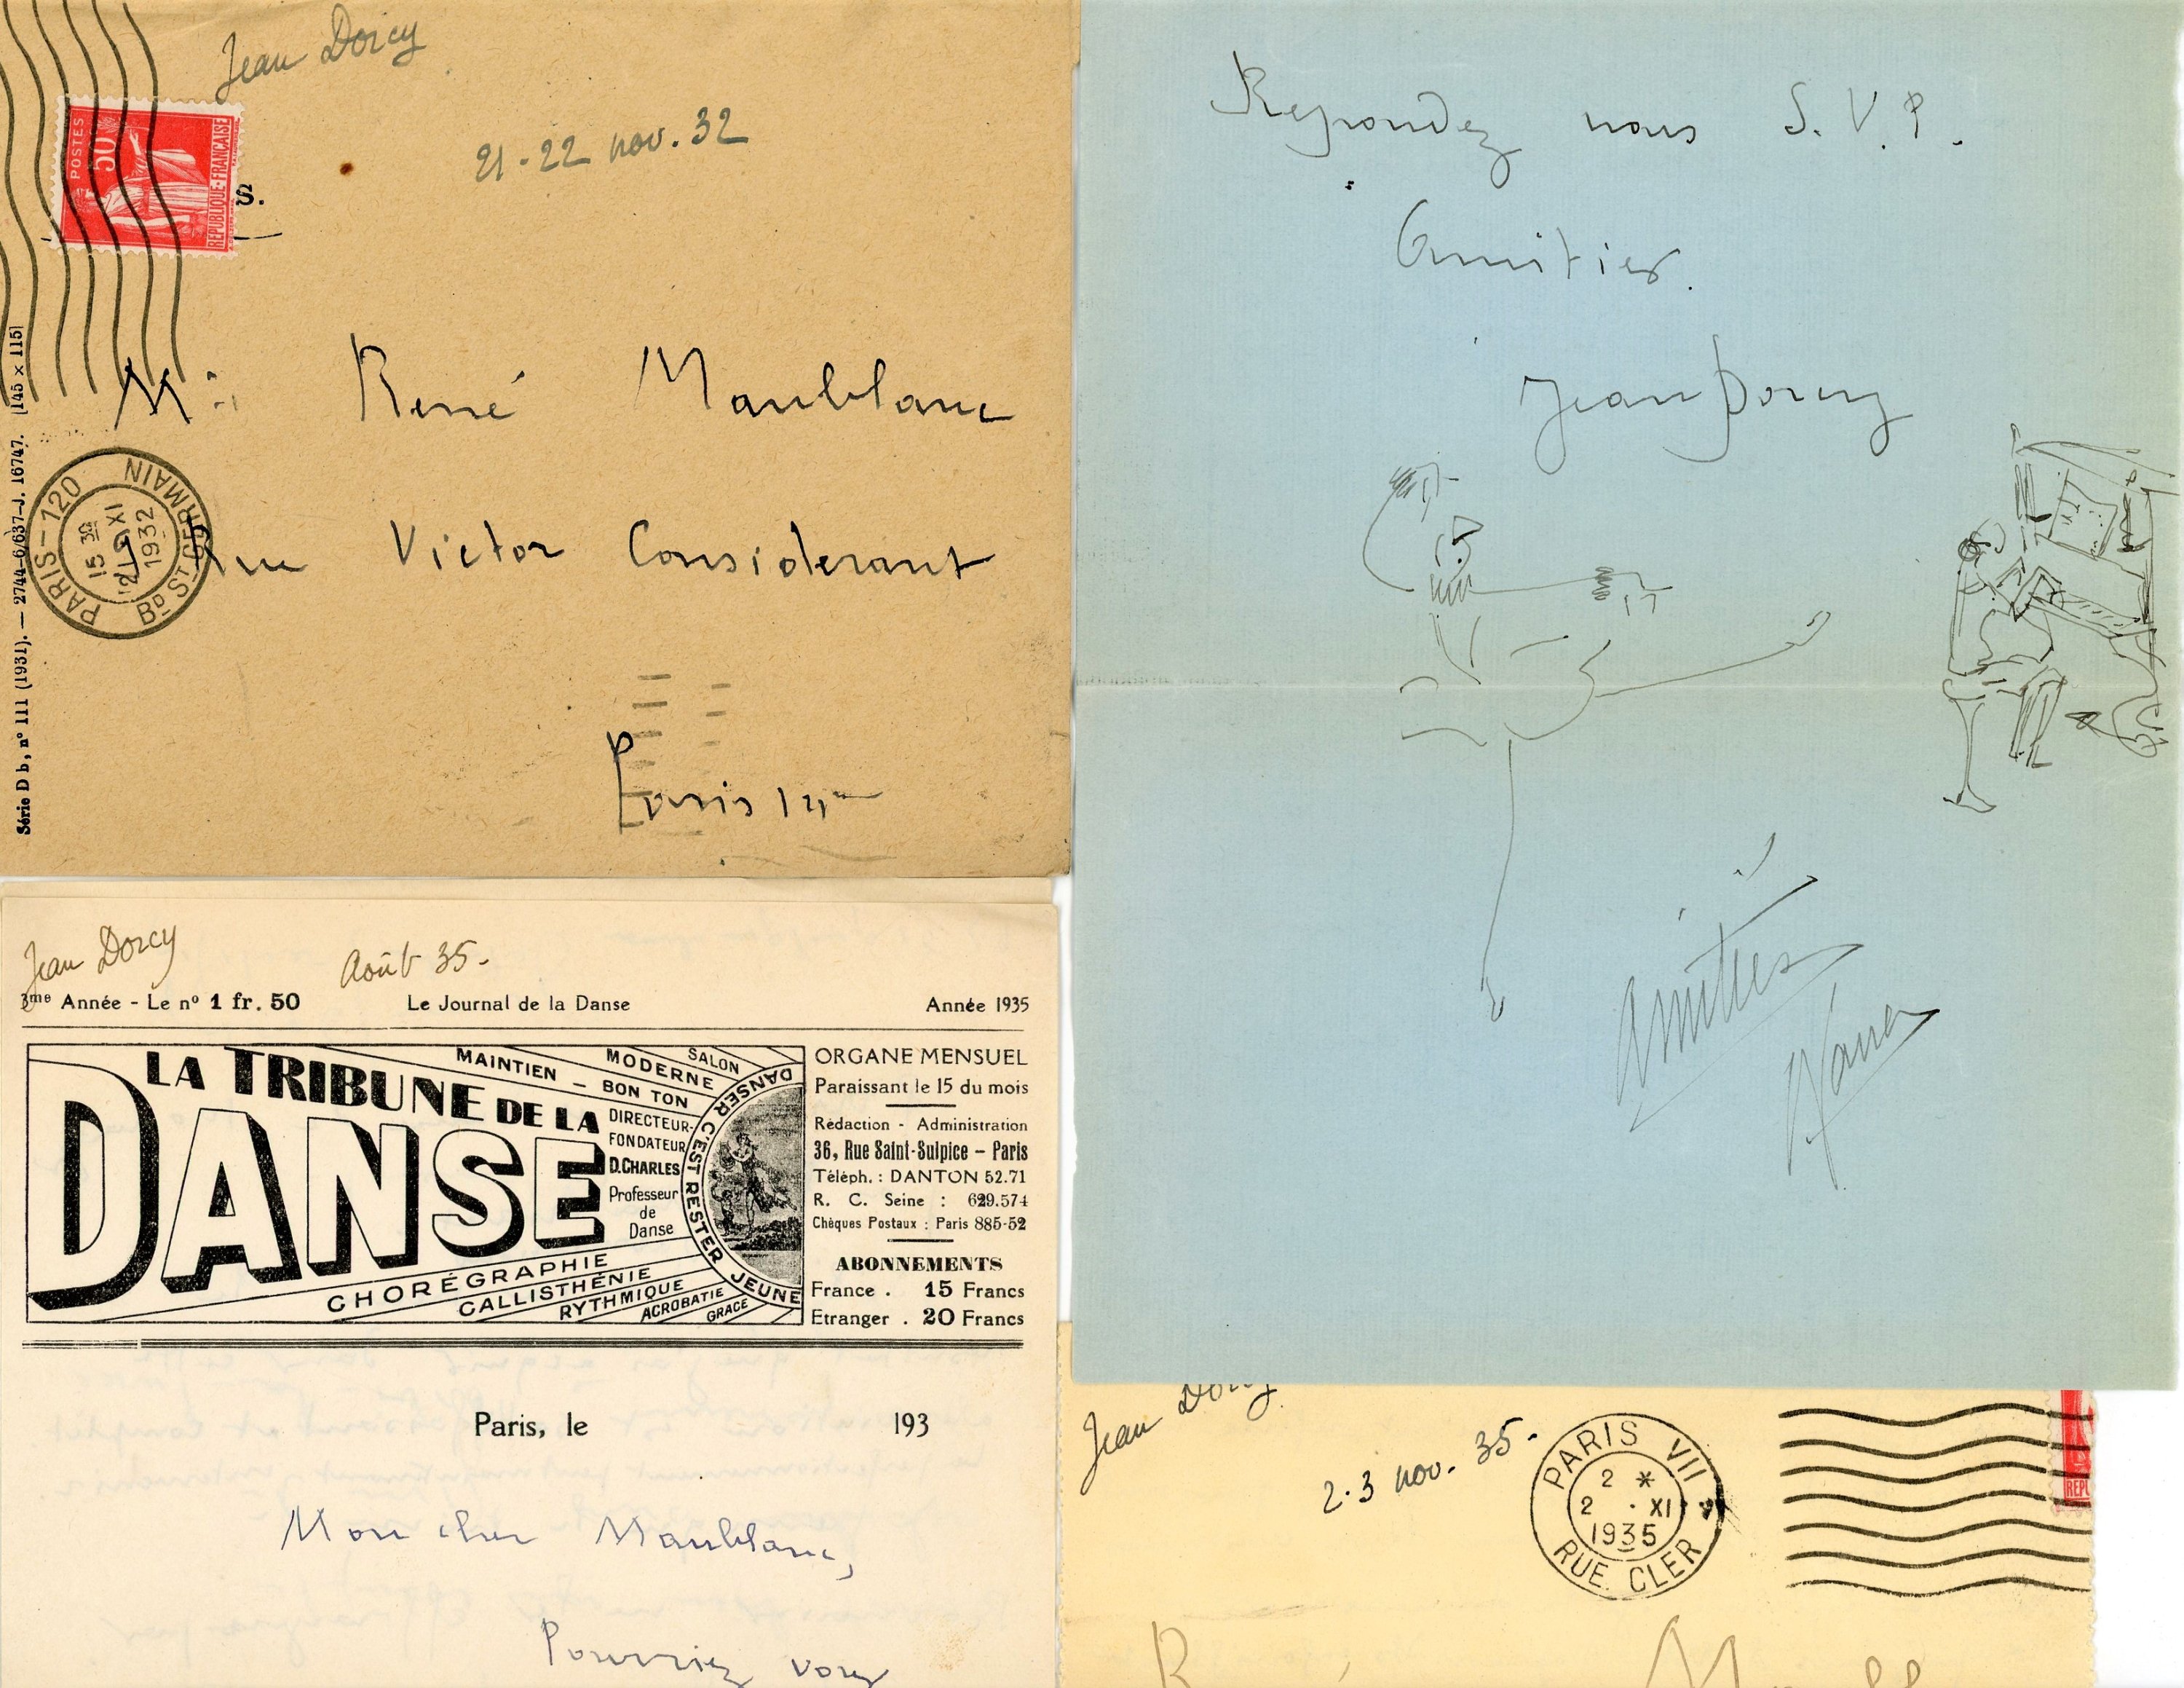 Jean Dorcy
21-22 nov. 32
POSTES
50
REPUBLIQUE·FRANÇAISE
S.
Mr René Maublanc
Rue Victor Considerant
Paris 14me
PARIS-120
15 30
21 XI
1932
BD ST GERMAIN
Série D b, n° 111 (1931). — 2744-6/637-J. 16747. [145 × 115]
Repondez nous S.V.P.
Amitiés.
Jean Dorcy
Amitiés
Jean Dorcy
Août 35.
3me Année - Le no 1 fr. 50
Le Journal de la Danse
Année 1935
LA TRIBUNE DE LA
DANSE
MAINTIEN - BON TON
MODERNE
SALON
DIRECTEUR-
FONDATEUR
D.CHARLES
Professeur
de
Danse
DANSER C'EST RESTER JEUNE
CHORÉGRAPHIE
CALLISTHÉNIE
RYTHMIQUE
ACROBATIE
GRACE
ORGANE MENSUEL
Paraissant le 15 du mois
Rédaction - Administration
36, Rue Saint-Sulpice - Paris
Téléph. : DANTON 52.71
R. C. Seine : 629.574
Chèques Postaux : Paris 885-52
ABONNEMENTS
France . 15 Francs
Etranger . 20 Francs
Paris, le 193
Mon cher Maublanc,
Pourriez vous
Jean Dorcy
2.3 nov. 35.
PARIS VII
2 *
2 · XI
1935
RUE CLER
REPU